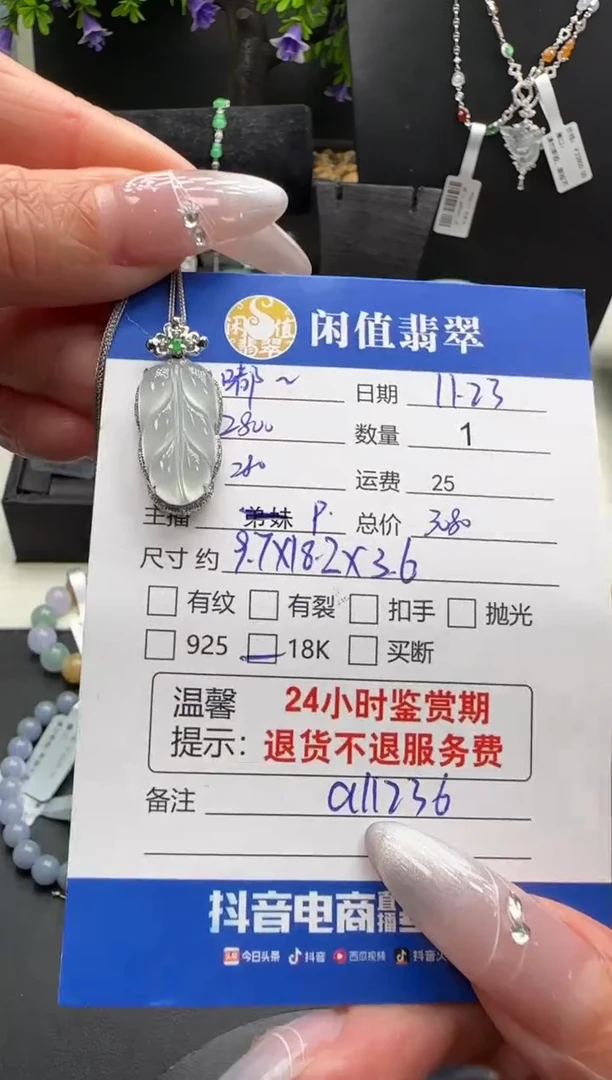 闲值翡翠
闲值翡翠
嘟~ 日期 11-23
2800 数量 1
280 运费 25
主播 弟妹 P. 总价 3080
尺寸 约 9.7X18.2X3.6
有纹 有裂 扣手 抛光
925 18K 买断
温馨提示: 24小时鉴赏期
退货不退服务费
备注 a11236
抖音电商直播
头条 今日头条 抖音 西瓜视频 抖音火